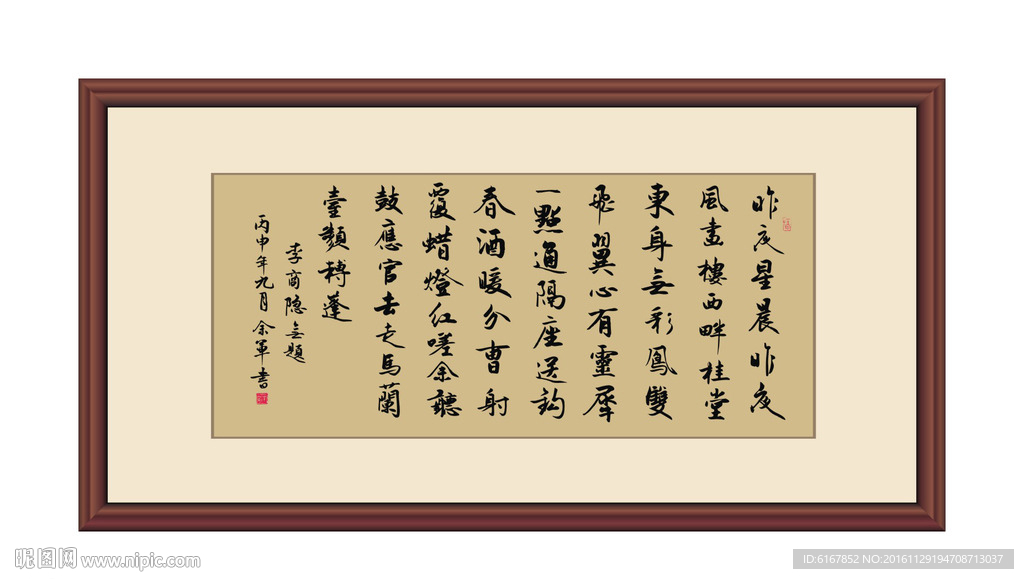 昨夜星晨昨夜
風畫樓西畔桂堂
東身無彩鳳雙
飛翼心有靈犀
一點通隔座送鈎
春酒暖分曹射
覆蜡燈红嗟余聽
鼓應官去走馬蘭
臺類轉蓬
李商隐無題
丙申年九月余軍書
昵图网 www.nipic.com
ID:6167852 NO:20161129194708713037